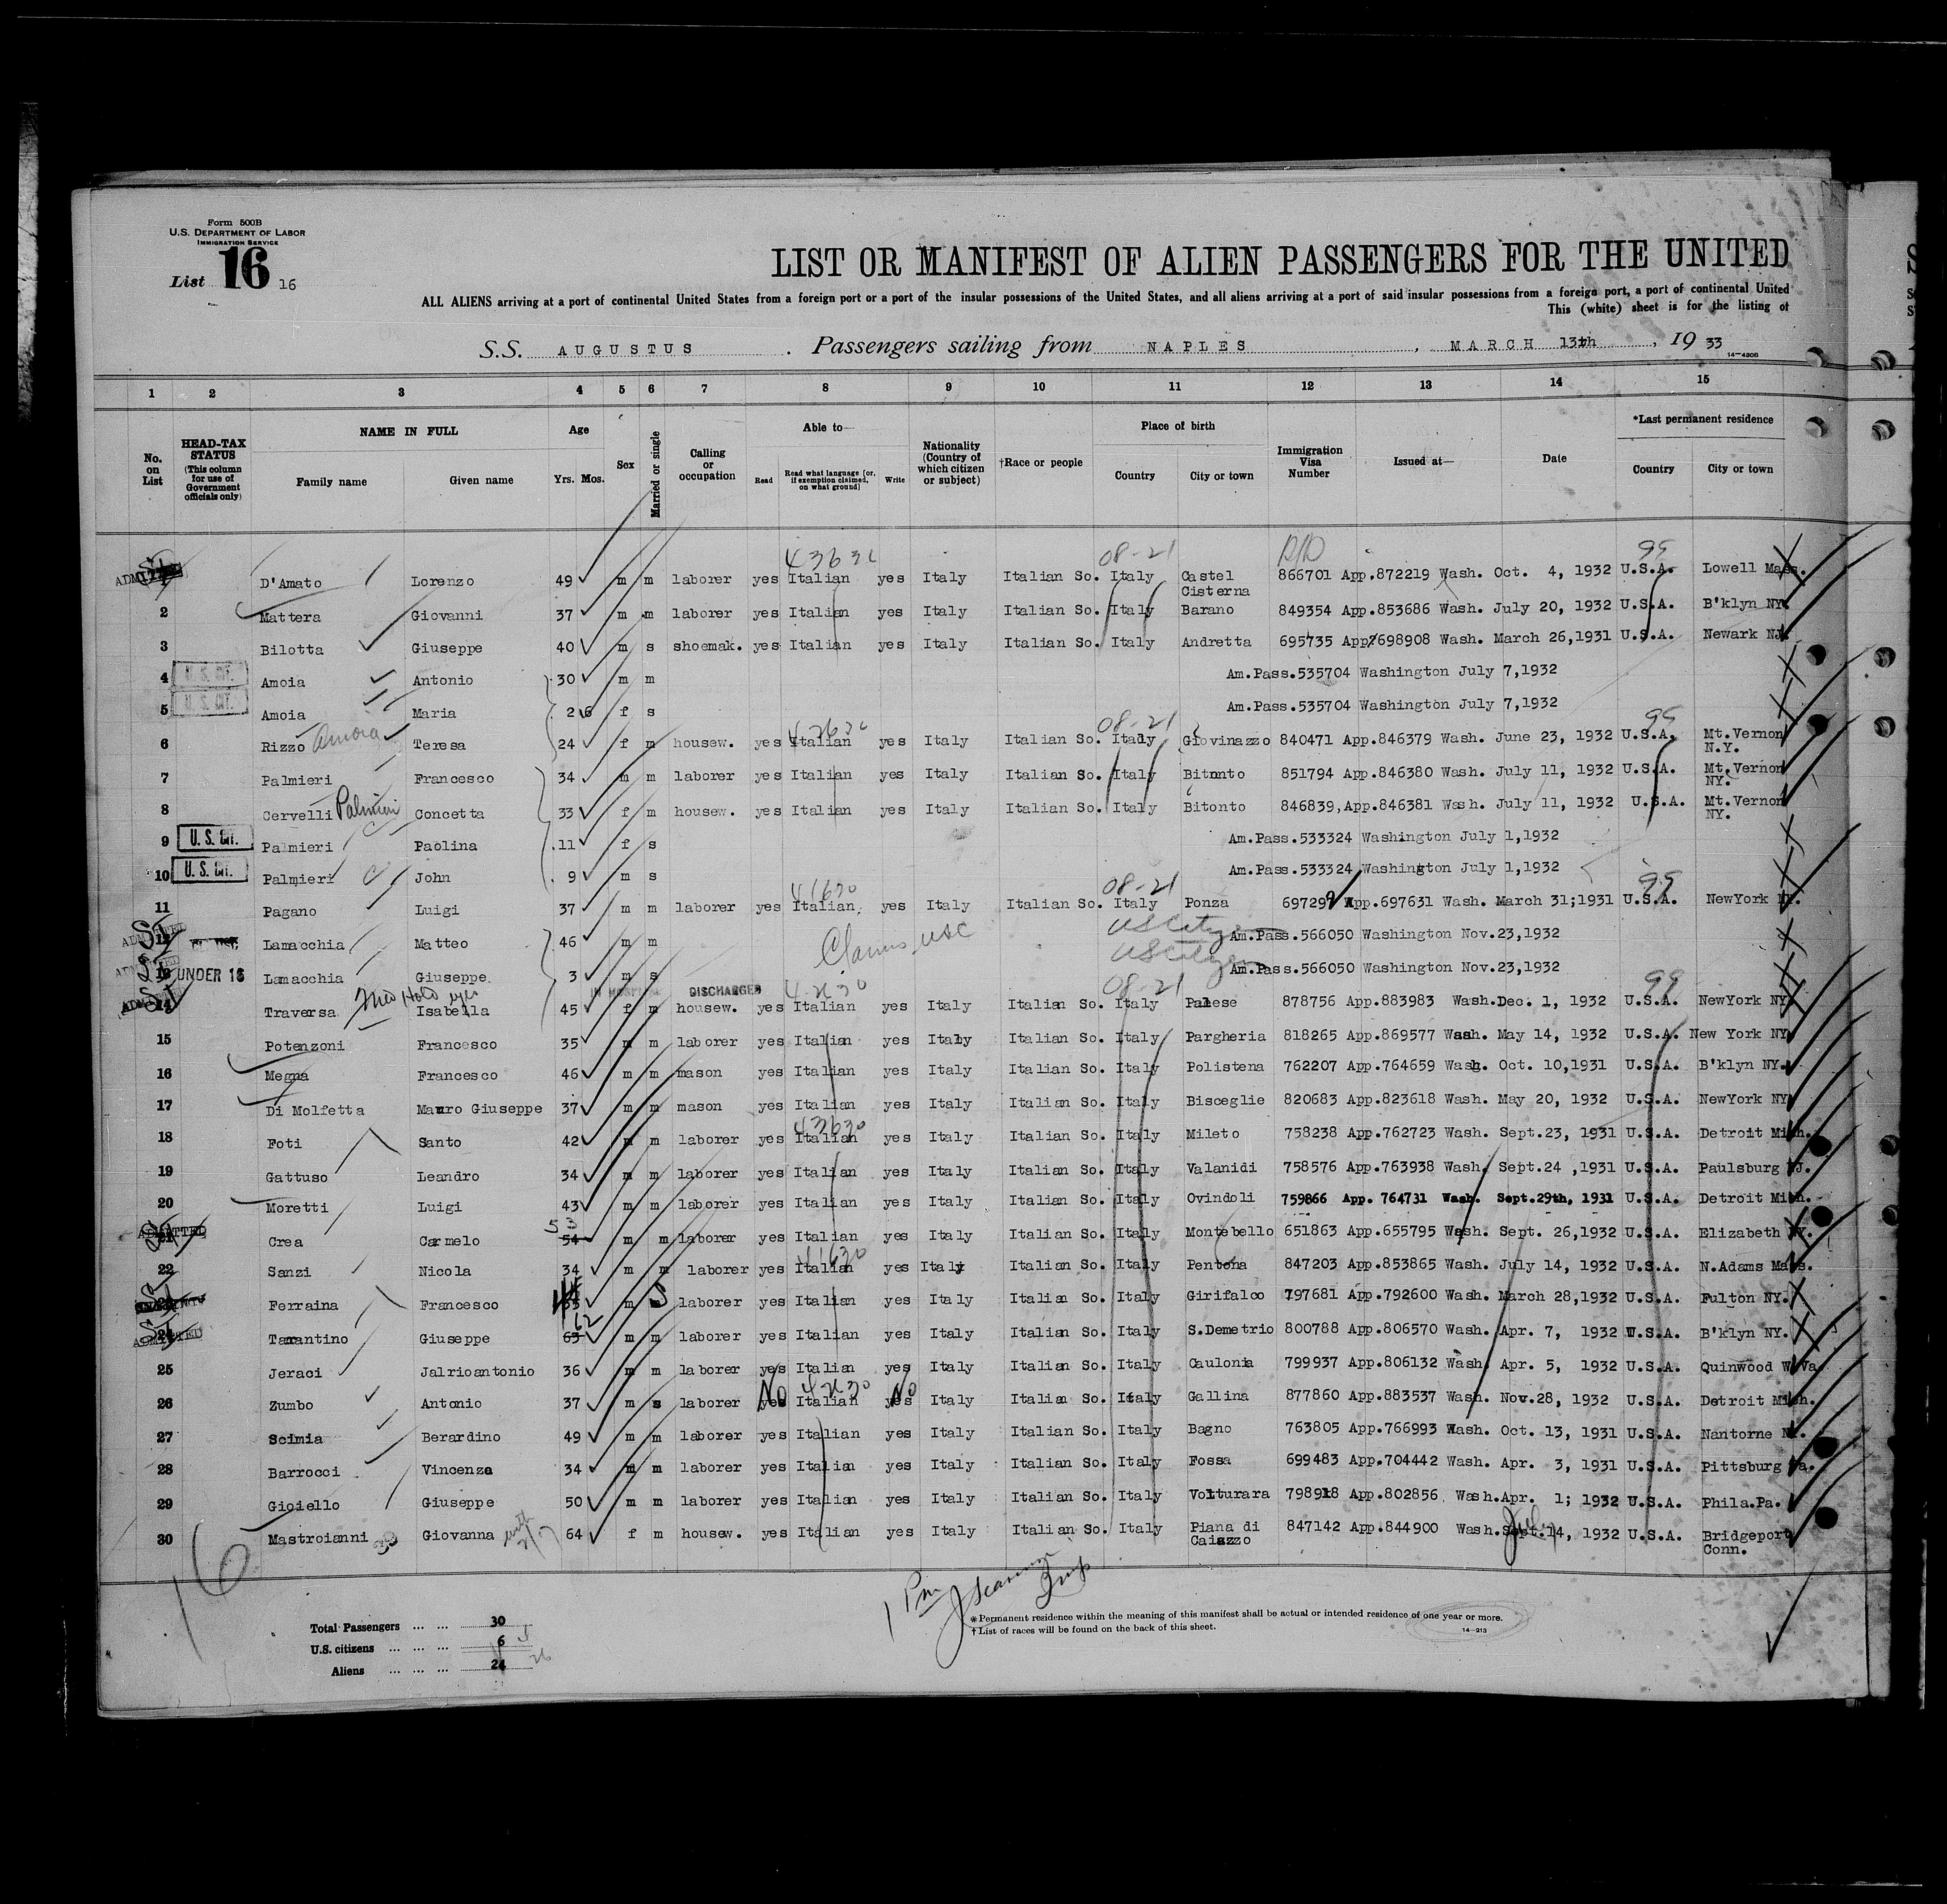 Form 500B
U.S. DEPARTMENT OF LABOR
IMMIGRATION SERVICE
List 16 16
LIST OR MANIFEST OF ALIEN PASSENGERS FOR THE UNITED
ALL ALIENS arriving at a port of continental United States from a foreign port or a port of the insular possessions of the United States, and all aliens arriving at a port of said insular possessions from a foreign port, a port of continental United
This (white) sheet is for the listing of
S.S. AUGUSTUS . Passengers sailing from NAPLES , MARCH 13th , 19 33
14-430B
1 2 3 4 5 6 7 8 9 10 11 12 13 14 15
No. on List
HEAD-TAX STATUS (This column for use of Government officials only)
NAME IN FULL
Family name Given name
Age
Yrs. Mos.
Sex
Married or single
Calling or occupation
Able to—
Read Read what language [or, if exemption claimed, on what ground] Write
Nationality (Country of which citizen or subject)
†Race or people
Place of birth
Country City or town
Immigration Visa Number
Issued at—
Date
*Last permanent residence
Country City or town
08-21 99
ADMITTED D'Amato Lorenzo 49 m m laborer yes Italian yes Italy Italian So. Italy Castel Cisterna 866701 App.872219 Wash. Oct. 4, 1932 U.S.A. Lowell Mass.
2 Mattera Giovanni 37 m m laborer yes Italian yes Italy Italian So. Italy Barano 849354 App.853686 Wash. July 20, 1932 U.S.A. B'klyn NY.
3 Bilotta Giuseppe 40 m s shoemak. yes Italian yes Italy Italian So. Italy Andretta 695735 App.698908 Wash. March 26,1931 U.S.A. Newark NJ.
4 U. S. CIT. Amoia Antonio 30 m m Am.Pass.535704 Washington July 7,1932
5 U. S. CIT. Amoia Maria 2 6 f s Am.Pass.535704 Washington July 7,1932
08-21 99
6 Rizzo Amoia Teresa 24 f m housew. yes Italian yes Italy Italian So. Italy Giovinazzo 840471 App.846379 Wash. June 23, 1932 U.S.A. Mt.Vernon N.Y.
7 Palmieri Francesco 34 m m laborer yes Italian yes Italy Italian So. Italy Bitonto 851794 App.846380 Wash. July 11, 1932 U.S.A. Mt.Vernon NY.
8 Cervelli Palmieri Concetta 33 f m housew. yes Italian yes Italy Italian So. Italy Bitonto 846839,App.846381 Wash. July 11, 1932 U.S.A. Mt.Vernon NY.
9 U. S. CIT. Palmieri Paolina 11 f s Am.Pass.533324 Washington July 1,1932
10 U. S. CIT. Palmieri John 9 m s Am.Pass.533324 Washington July 1,1932
41630 08-21 99
11 Pagano Luigi 37 m m laborer yes Italian yes Italy Italian So. Italy Ponza App.697631 Wash. March 31;1931 U.S.A. NewYork NY.
ADMITTED 12 Lamacchia Matteo 46 m m Claims USC US Citizen Am.Pass.566050 Washington Nov.23,1932
ADMITTED 13 UNDER 16 Lamacchia Giuseppe 3 m s US Citizen Am.Pass.566050 Washington Nov.23,1932
IN HOSPITAL DISCHARGED 08-21 99
ADMITTED 14 Traversa Isabella 45 f m housew. yes Italian yes Italy Italian So. Italy Palese 878756 App.883983 Wash.Dec. 1, 1932 U.S.A. NewYork NY
15 Potenzoni Francesco 35 m m laborer yes Italian yes Italy Italian So. Italy Pargheria 818265 App.869577 Wash. May 14, 1932 U.S.A. New York NY
16 Megna Francesco 46 m m mason yes Italian yes Italy Italian So. Italy Polistena 762207 App.764659 Wash. Oct. 10,1931 U.S.A. B'klyn NY.
17 Di Molfetta Mauro Giuseppe 37 m m mason yes Italian yes Italy Italian So. Italy Bisceglie 820683 App.823618 Wash. May 20, 1932 U.S.A. NewYork NY
18 Foti Santo 42 m m laborer yes Italian yes Italy Italian So. Italy Mileto 758238 App.762723 Wash. Sept.23, 1931 U.S.A. Detroit Mich.
19 Gattuso Leandro 34 m m laborer yes Italian yes Italy Italian So. Italy Valanidi 758576 App.763938 Wash. Sept.24 ,1931 U.S.A. Paulsburg NJ.
20 Moretti Luigi 43 m m laborer yes Italian yes Italy Italian So. Italy Ovindoli 759866 App. 764731 Wash. Sept.29th, 1931 U.S.A. Detroit Mich.
ADMITTED 21 Crea Carmelo 53 54 m m laborer yes Italian yes Italy Italian So. Italy Montebello 651863 App.655795 Wash. Sept. 26,1932 U.S.A. Elizabeth NY.
22 Sanzi Nicola 34 m m laborer yes Italian yes Italy Italian So. Italy Pentona 847203 App.853865 Wash. July 14, 1932 U.S.A. N.Adams Mass.
23 Ferraina Francesco m S laborer yes Italian yes Italy Italian So. Italy Girifalco 797681 App.792600 Wash. March 28,1932 U.S.A. Fulton NY.
ADMITTED 24 Tarantino Giuseppe 62 63 m m laborer yes Italian yes Italy Italian So. Italy S.Demetrio 800788 App.806570 Wash. Apr. 7, 1932 U.S.A. B'klyn NY.
25 Jeraci Jalrioantonio 36 m m laborer yes Italian yes Italy Italian So. Italy Caulonia 799937 App.806132 Wash. Apr. 5, 1932 U.S.A. Quinwood W.Va.
26 Zumbo Antonio 37 m s laborer yes No Italian yes No Italy Italian So. Italy Gallina 877860 App.883537 Wash. Nov.28, 1932 U.S.A. Detroit Mich.
27 Scimia Berardino 49 m m laborer yes Italian yes Italy Italian So. Italy Bagno 763805 App.766993 Wash. Oct. 13, 1931 U.S.A. Nantorne
28 Barrocci Vincenzo 34 m m laborer yes Italian yes Italy Italian So. Italy Fossa 699483 App.704442 Wash. Apr. 3, 1931 U.S.A. Pittsburg Pa.
29 Gioiello Giuseppe 50 m m laborer yes Italian yes Italy Italian So. Italy Volturara 798918 App.802856 Wash.Apr. 1; 1932 U.S.A. Phila.Pa.
30 Mastroianni Giovanna 64 f m housew. yes Italian yes Italy Italian So. Italy Piana di Caiazzo 847142 App.844900 Wash.Sept.14, 1932 July U.S.A. Bridgeport Conn.
16
Total Passengers ... ... 30
U.S. citizens ... ... ... 6 5
Aliens ... ... ... 24 26
*Permanent residence within the meaning of this manifest shall be actual or intended residence of one year or more.
†List of races will be found on the back of this sheet.
14-213